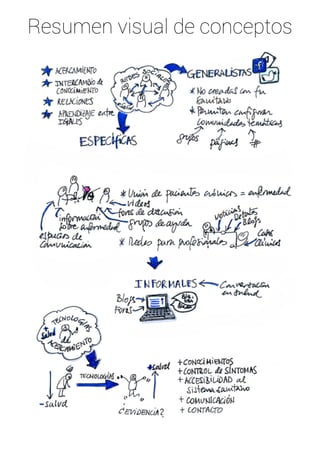 Resumen visual de conceptos
★ ACERCAMIENTO
★ INTERCAMBIO de
CONOCIMIENTO
★ RELACIONES
★ APRENDIZAJE entre
IGUALES
REDES SOCIALES
Salud
GENERALISTAS
* No creadas con fin
sanitario
* Permiten configurar
comunidades temáticas
grupos páginas #
ESPECÍFICAS
* Unión de pacientes crónicos = enfermedad
vídeos
foros de discusión
grupos de ayuda
información
sobre enfermedad
espacios de
comunicación
* Redes para profesionales
noticias
Debates
Blogs
Casos
clínicos
INFORMALES
Conversación
en general
Blogs
Foros
TECNOLOGÍAS
Salud
de
ACERCAMIENTO
-salud
TECNOLOGÍAS
+salud
¿EVIDENCIA?
+ CONOCIMIENTOS
+ CONTROL de SÍNTOMAS
+ ACCESIBILIDAD al
sistema sanitario
+ COMUNICACIÓN
+ CONTACTO